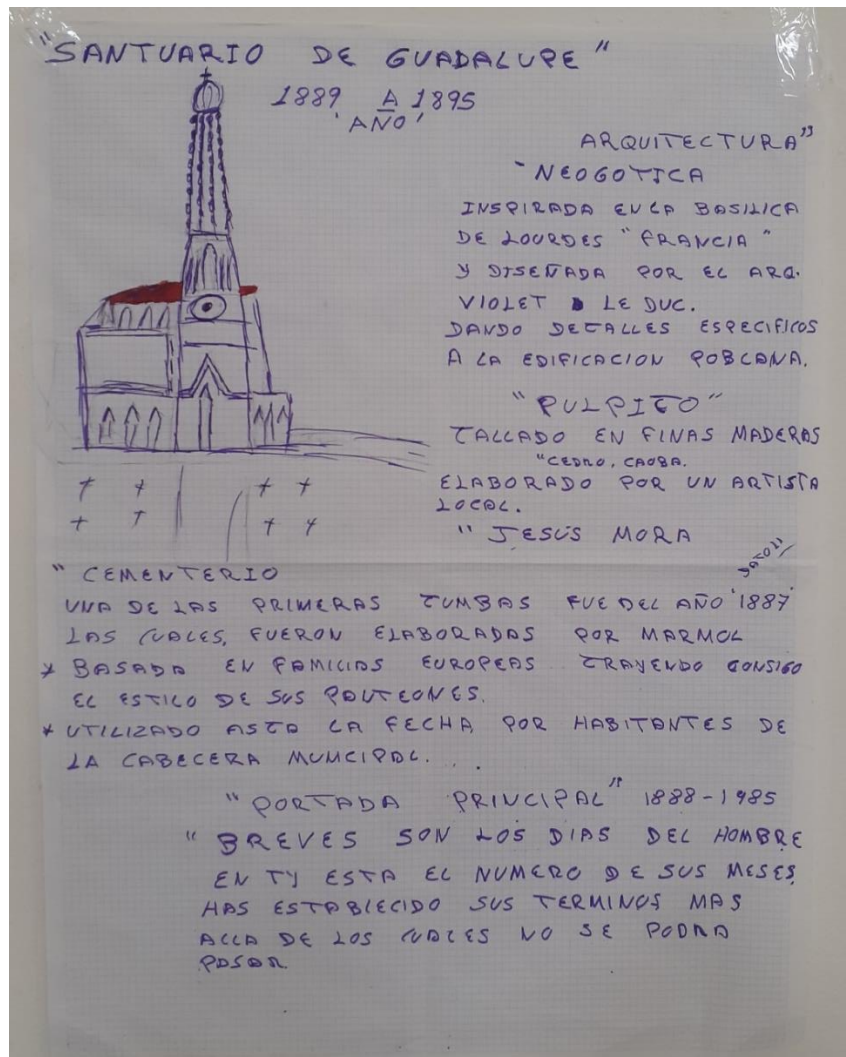 "SANTUARIO DE GUADALUPE"
1889 A 1895
'AÑO'
ARQUITECTURA"
"NEOGOTICA
INSPIRADA EN LA BASILICA
DE LOURDES "FRANCIA"
Y DISEÑADA POR EL ARQ.
VIOLET LE DUC.
DANDO DETALLES ESPECIFICOS
A LA EDIFICACION POBLANA.
"PULPITO"
TALLADO EN FINAS MADERAS
"CEDRO, CAOBA.
ELABORADO POR UN ARTISTA
LOCAL.
"JESÚS MORA
"CEMENTERIO
UNA DE LAS PRIMERAS TUMBAS FUE DEL AÑO '1887'
LAS CUALES, FUERON ELABORADAS POR MARMOL
* BASADA EN FAMILIAS EUROPEAS TRAYENDO CONSIGO
EL ESTILO DE SUS PANTEONES.
* UTILIZADO ASTA LA FECHA POR HABITANTES DE
LA CABECERA MUNICIPAL...
"PORTADA PRINCIPAL" 1888-1985
"BREVES SON LOS DIAS DEL HOMBRE
EN TY ESTA EL NUMERO DE SUS MESES,
HAS ESTABLECIDO SUS TERMINOS MAS
ALLA DE LOS CUALES NO SE PODRA
PASAR.